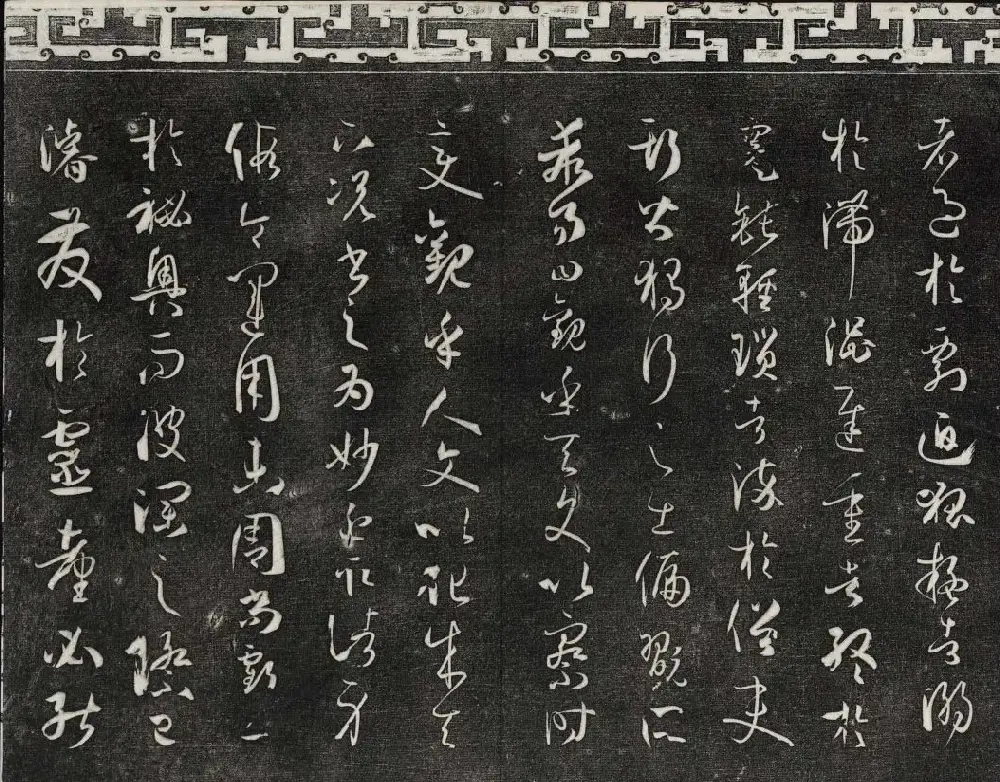 者過於剽迫狐疑者溺
於滯澀遲重者終於
蹇鈍輕瑣者染於俗吏
斯皆獨行之士偏翫所
乖易曰觀乎天文以察時
變觀乎人文以化成天
下況書之為妙近取諸身
假令運用未周尚虧工
於祕奧而波瀾之際已
濬發於靈臺必能